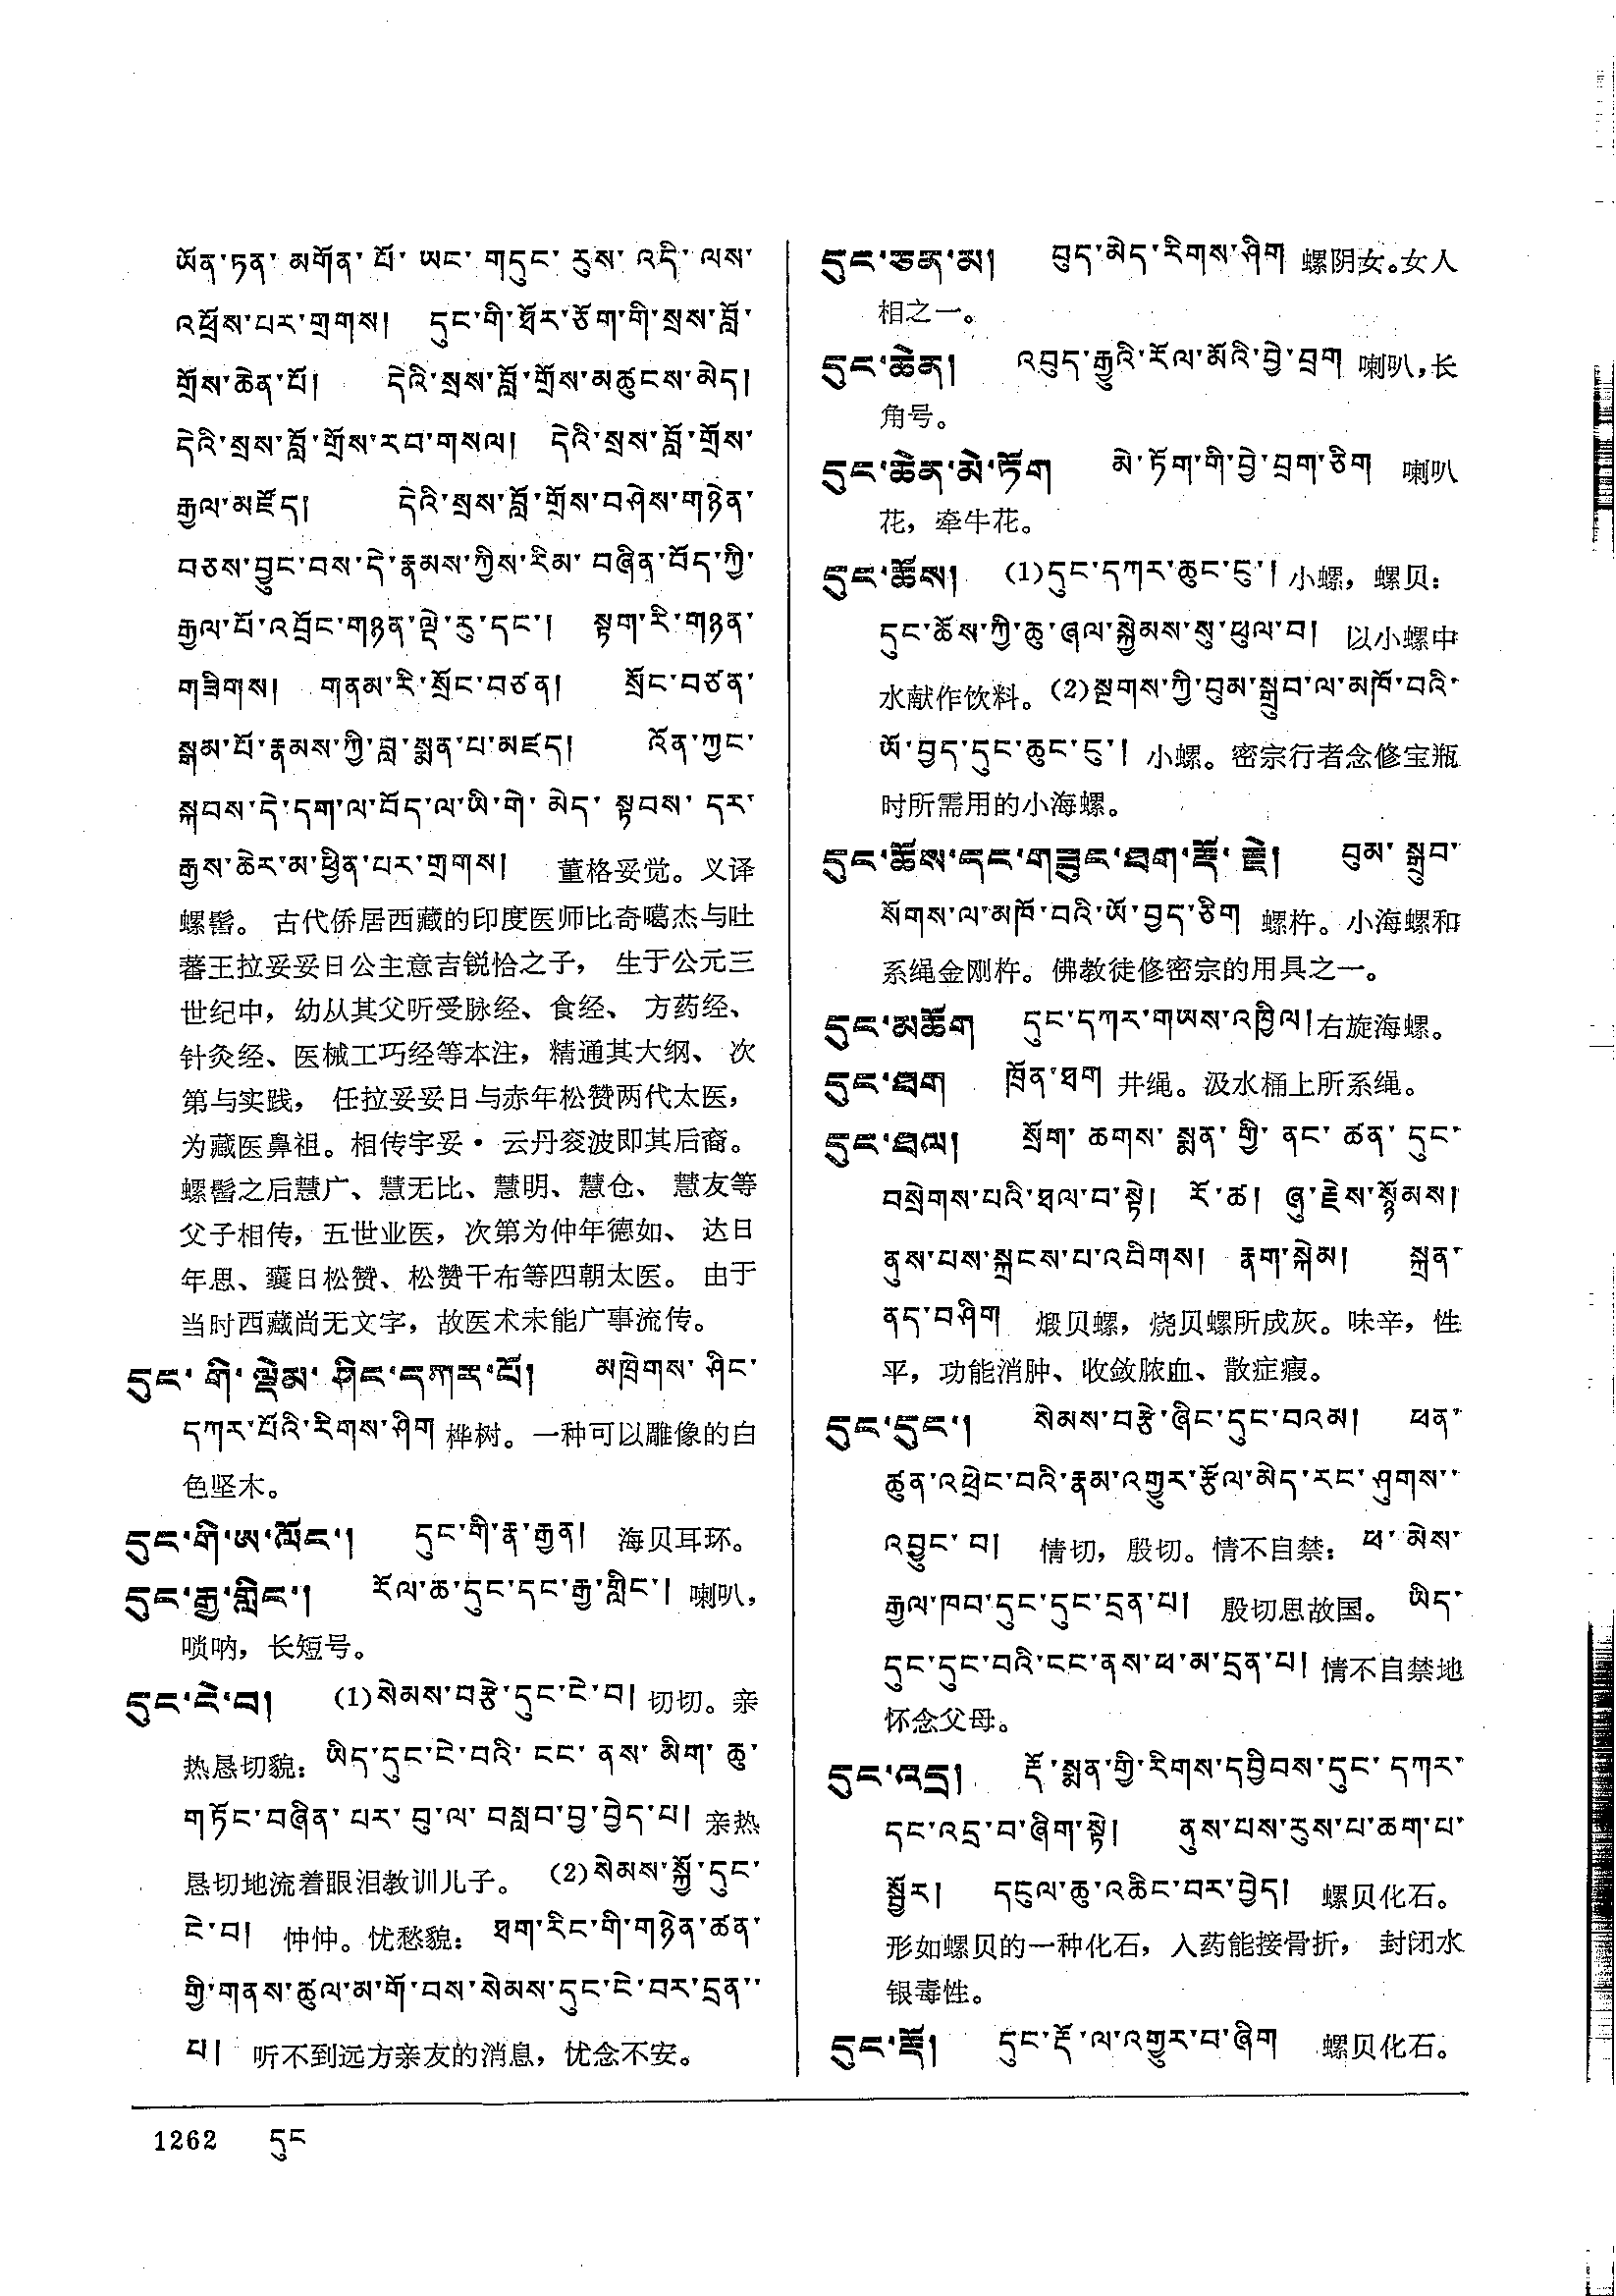 ཡོན་ཏན་ མགོན་ པོ་ ཡང་ གདུང་ རུས་ འདི་ ལས་
འཕྲོས་པར་གྲགས། དུང་གི་ཐོར་ཅོག་གི་སྲས་བློ་
གྲོས་ཆེན་པོ། དེའི་སྲས་བློ་གྲོས་མཚུངས་མེད།
དེའི་སྲས་བློ་གྲོས་རབ་གསལ། དེའི་སྲས་བློ་གྲོས་
རྒྱལ་མཛོད། དེའི་སྲས་བློ་གྲོས་བཤེས་གཉེན་
བཅས་བྱུང་བས་དེ་རྣམས་ཀྱིས་རིམ་ བཞིན་བོད་ཀྱི་
རྒྱལ་པོ་འབྲོང་གཉན་ལྡེ་རུ་དང་། སྟག་རི་གཉན་
གཟིགས། གནམ་རི་སྲོང་བཙན། སྲོང་བཙན་
སྒམ་པོ་རྣམས་ཀྱི་བླ་སྨན་པ་མཛད། འོན་ཀྱང་
སྐབས་དེ་དག་ལ་བོད་ལ་ཡི་གེ་ མེད་ སྟབས་ དར་
རྒྱས་ཆེར་མ་ཕྱིན་པར་གྲགས། 董格妥觉。义译
螺髻。 古代侨居西藏的印度医师比奇噶杰与吐
蕃王拉妥妥日公主意吉锐恰之子， 生于公元三
世纪中，幼从其父听受脉经、食经、 方药经、
针灸经、医械工巧经等本注，精通其大纲、 次
第与实践， 任拉妥妥日与赤年松赞两代太医，
为藏医鼻祖。相传宇妥·云丹衮波即其后裔。
螺髻之后慧广、慧无比、慧明、慧仓、 慧友等
父子相传，五世业医，次第为仲年德如、 达日
年思、囊日松赞、松赞干布等四朝太医。 由于
当时西藏尚无文字，故医术未能广事流传。
དུང་ གི་ ལྡེམ་ ཤིང་དཀར་པོ། མཁྲེགས་ ཤིང་
དཀར་པོའི་རིགས་ཤིག 桦树。一种可以雕像的白
色坚木。
དུང་གི་ཨ་ལོང་། དུང་གི་རྣ་རྒྱན། 海贝耳环。
དུང་རྒྱ་གླིང་། རོལ་ཆ་དུང་དང་རྒྱ་གླིང་། 喇叭，
唢呐，长短号。
དུང་ངེ་བ། (1)སེམས་བརྩེ་དུང་ངེ་བ། 切切。亲
热恳切貌：ཡིད་དུང་ངེ་བའི་ ངང་ ནས་ མིག་ ཆུ་
གཏོང་བཞིན་ པར་ བུ་ལ་ བསླབ་བྱ་བྱེད་པ། 亲热
恳切地流着眼泪教训儿子。 (2)སེམས་སྐྱོ་དུང་
ངེ་བ། 忡忡。忧愁貌：ཐག་རིང་གི་གཉེན་ཚན་
གྱི་གནས་ཚུལ་མ་གོ་བས་སེམས་དུང་ངེ་བར་དྲན་་
པ། 听不到远方亲友的消息，忧念不安。
དུང་ཅན་མ། བུད་མེད་རིགས་ཤིག 螺阴女。女人
相之一。
དུང་ཆེན། འབུད་རྒྱུའི་རོལ་མོའི་བྱེ་བྲག 喇叭，长
角号。
དུང་ཆེན་མེ་ཏོག མེ་ཏོག་གི་བྱེ་བྲག་ཅིག 喇叭
花，牵牛花。
དུང་ཆོས། (1)དུང་དཀར་ཆུང་ངུ་། 小螺，螺贝：
དུང་ཆོས་ཀྱི་ཆུ་ཞལ་སྐྱེམས་སུ་ཕུལ་བ། 以小螺中
水献作饮料。(2)སྔགས་ཀྱི་བུམ་སྒྲུབ་ལ་མཁོ་བའི་
ཡོ་བྱད་དུང་ཆུང་ངུ་། 小螺。密宗行者念修宝瓶
时所需用的小海螺。
དུང་ཆོས་དང་གཟུང་ཐག་རྡོ་ རྗེ། བུམ་ སྒྲུབ་
སོགས་ལ་མཁོ་བའི་ཡོ་བྱད་ཅིག 螺杵。小海螺和
系绳金刚杵。佛教徒修密宗的用具之一。
དུང་མཆོག དུང་དཀར་གཡས་འཁྱིལ། 右旋海螺。
དུང་ཐག ཁྲོན་ཐག 井绳。汲水桶上所系绳。
དུང་ཐལ། སྲོག་ ཆགས་ སྨན་ གྱི་ ནང་ ཚན་ དུང་
བསྲེགས་པའི་ཐལ་བ་སྟེ། རོ་ཚ། ཞུ་རྗེས་སྙོམས།
ནུས་པས་སྐྲངས་པ་འབིགས། རྣག་སྐེམ། སྐྲན་
ནད་བཤིག 煅贝螺，烧贝螺所成灰。味辛，性
平，功能消肿、收敛脓血、散症瘕。
དུང་དུང་། སེམས་བརྩེ་ཞིང་དུང་བའམ། ཕན་
ཚུན་འཕྲེང་བའི་རྣམ་འགྱུར་རྩོལ་མེད་རང་ཤུགས་་
འབྱུང་ བ། 情切，殷切。情不自禁：ཕ་ མེས་
རྒྱལ་ཁབ་དུང་དུང་དྲན་པ། 殷切思故国。 ཡིད་
དུང་དུང་བའི་ངང་ནས་ཕ་མ་དྲན་པ། 情不自禁地
怀念父母。
དུང་འདྲ། རྡོ་སྨན་གྱི་རིགས་དབྱིབས་དུང་ དཀར་
དང་འདྲ་བ་ཞིག་སྟེ། ནུས་པས་རུས་པ་ཆག་པ་
སྦྱོར། དངུལ་ཆུ་འཆིང་བར་བྱེད། 螺贝化石。
形如螺贝的一种化石，入药能接骨折， 封闭水
银毒性。
དུང་རྡོ། དུང་རྡོ་ལ་འགྱུར་བ་ཞིག 螺贝化石。
1262 དུང